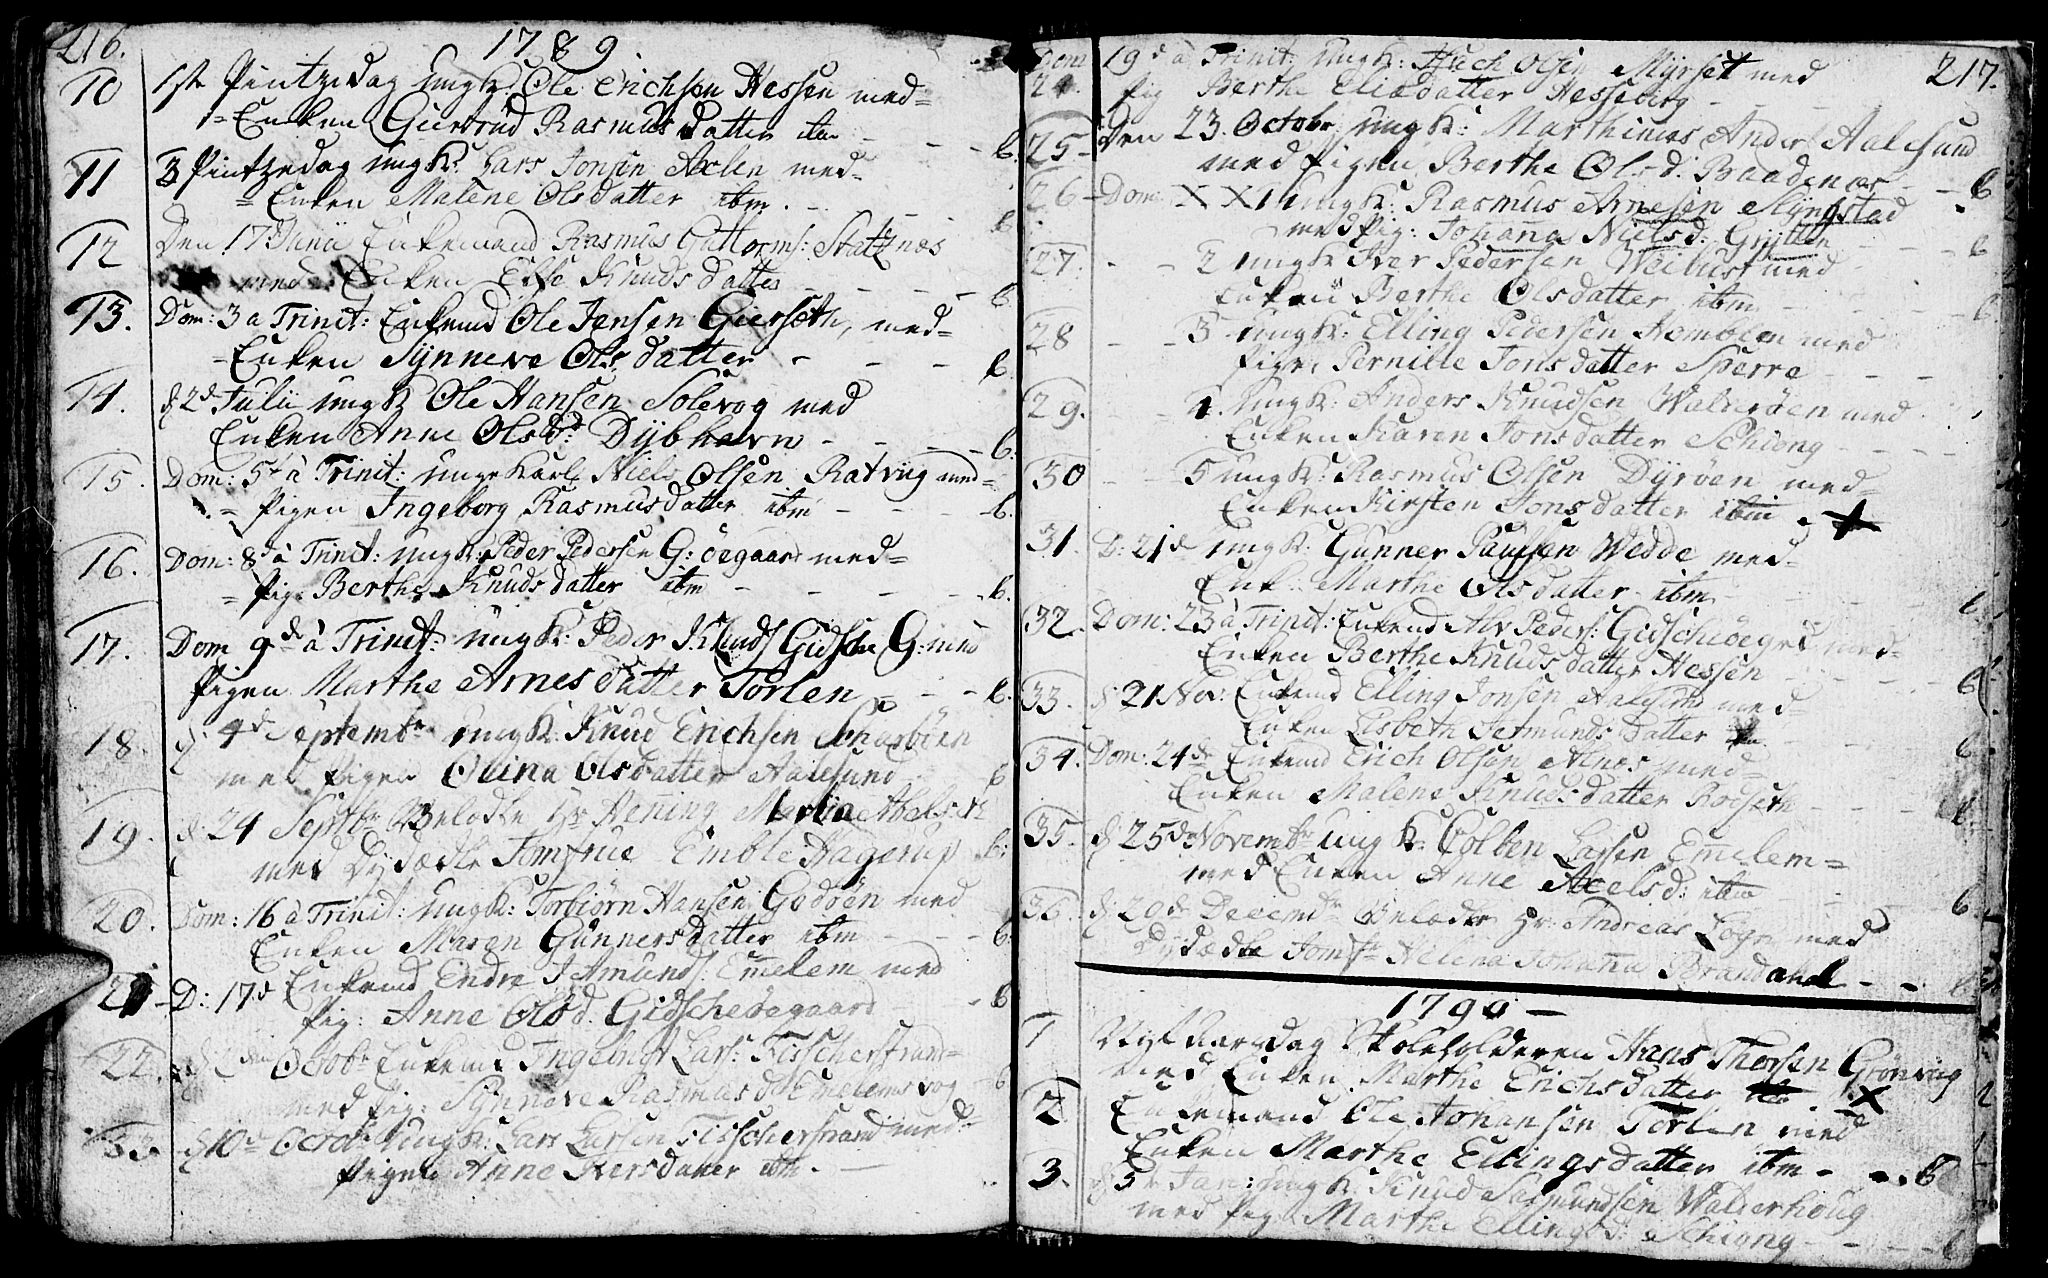 216.
1789.
10 1ste Pintzedag Ungk: Ole Erichsen Hessen med=
Enken Giertrud Rasmusdatter ibm - - - 6.
11 3 Pintzedag Ungk: Lars Jonsen Axlen med=
= Enken Malene Olsdatter ibm. - - 6
12 Den 17de Junii Enkemand Rasmus Guttorms: Statznæs
med Enken Else Knudsdatter - - - - 6.
13. Dom: 3 a Trinit: Enkemd Ole Jensen Gierseth, med=
- Enken Synneve Olsdatter - - - 6.
14. d 2d Julii Ungk Ole Hansen Solevog med
Enken Anne Olsd: Dybhavn - - - - 6.
15. Dom: 5t à Trinit: Unge Karl Niels Olsen Ratviig med=
= Pigen Ingeborg Rasmusdatter ibm - - - 6.
16. Dom: 8d à Trinit: Ungk: Peder Pedersen G: öegaard med=
= Pig: Berthe Knudsdatter ibm - - - - 6.
17. Dom 9de à Trinit: Ungk: Peder Knuds Gidschöe G: med
Pigen Marthe Arnesdatter Torlen - - - 6.
18. d: 4d Septembr Ungk: Knud Erichsen
med Pigen Olina Olsdatter Aalesund 6
19. d: 24 Septbr Velædle Hr Hening Martin Abelseth
med Dydædle Jomfrue Emble Hagerup 6:
20. Dom: 16 à Trinit: Ungk: Torbiørn Hansen Godöen med
Enken Maren Gunnersdatter ibm - - - 6.
21 - D: 17d Enkemd Endre Jetmunds: Emelem med
Pig: Anne Olsd. Gidschöegaard - 6
22. d 2den Octobr Enkemd Ingebrigt Lars: Fischerstrand=
med Pig: Synneve Rasmusd Emelemsvog - 6
23 d 10d Octobr Ungk: Lars Larsen Fisscherstrand med
Pigen Anne Iversdatter ibm. -
217.
24. Dom 19d à Trinit: Ungk: Olsen Myrset med
Pig Berthe Eliasdatter Hesseberg - -
25 - Den 23. Octobr Ungk: Marthinus Anders Aalesund
med Pigen Berthe Olsd: Baadenæs - - 6
26 - Dom: XX Ungk: Rasmus Arnesen Slyngstad
med Pig: Johana Nielsd: Grytten - - 6
27. - - 2 Ungk Iver Pedersen Weibust med
Enken Berthe Olsdatter ibm - - - 6.
28 - - 3 Ungk: Elling Pedersen Hemblen med
Pige: Pernille Jonsdatter Sperre - - -
29. - - 4. Ungk: Anders Knudsen Walderöen med
Enken Karen Jonsdatter Schiong - - - -
30 - - 5 Ungk: Rasmus Olsen Dyröen med=
Enken Kirsten Jonsdatter ibm X
31. D: 21d Ungk: Gunner Paulsen Wedde med=
Enk: Marthe Olsdatter ibm - - - 6
32. Dom: 23 à Trinit: Enkemd Alv Peders: Gidschöegrd med=
Enken Berthe Knudsdatter Hessen - - - 6
33. d 21 Nov: Enkemd Elling Jonsen Aalesund med=
Enken Lisbeth Jetmundsdatter - - - 6
34. Dom: 24de Enkemd Erich Olsen Alnæs med=
Enken Malene Knudsdatter Rödseth - - - 6
35. d 25de Novembr Ungk: Colben Larsen Emelem=
med Enken Anne Axelsd: ibm - - - 6.
36. d 20de Decembr Velædle Hr: Andreas med
Dydædle Jomfr Helena Johanna Brandanel - - 6
1790 -
1 Nyt Aarsdag Skoleholderen Hans Thorsen Grönviig
med Enken Marthe Erichsdatter X
2. Enkemand Ole Johansen Torlen med
Enken Marthe Ellingsdatter ibm - - - 6
3. d 3d Jan: Ungk: Knud Sasmundsen Walderhoug
med Pig: Marthe Ellingsd: Schiong - - - - 6